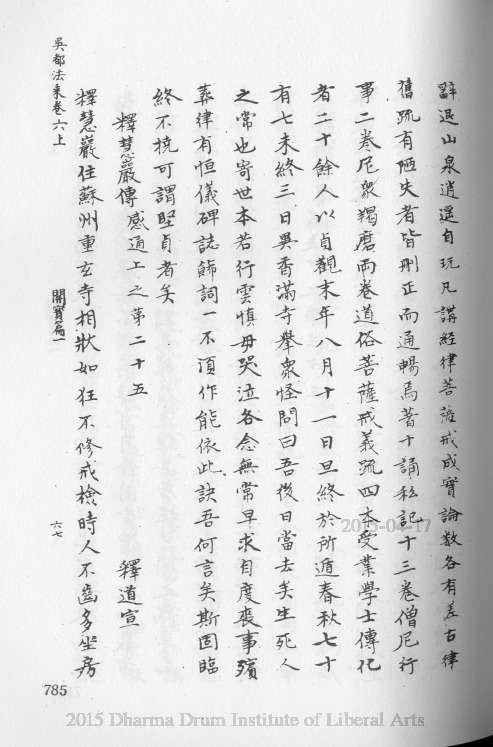 辭退山泉逍遥自玩凡講經律菩薩戒成實論數各有差古律
舊疏有陋失者皆刪正而通暢焉著十誦私記十三卷僧尼行
事二卷尼衆羯磨兩卷道俗菩薩戒義疏四本受業學士傳化
者二十餘人以貞觀末年八月十一日旦終於所遁春秋七十
有七未終三日異香滿寺舉衆怪問曰吾後日當去矣生死人
之常也寄世本若行雲慎毋哭泣各念無常早求自度喪事殯
葬律有恒儀碑誌飾詞一不須作能依此訣吾何言矣斯固臨
終不撓可謂堅貞者矣
釋慧巖傳 感通上之第二十五 釋道宣
釋慧巖住蘇州重玄寺相狀如狂不修戒檢時人不齒多坐房
吳都法乘卷六上 開寶篇一 六七
785
2015-04-17
2015 Dharma Drum Institute of Liberal Arts